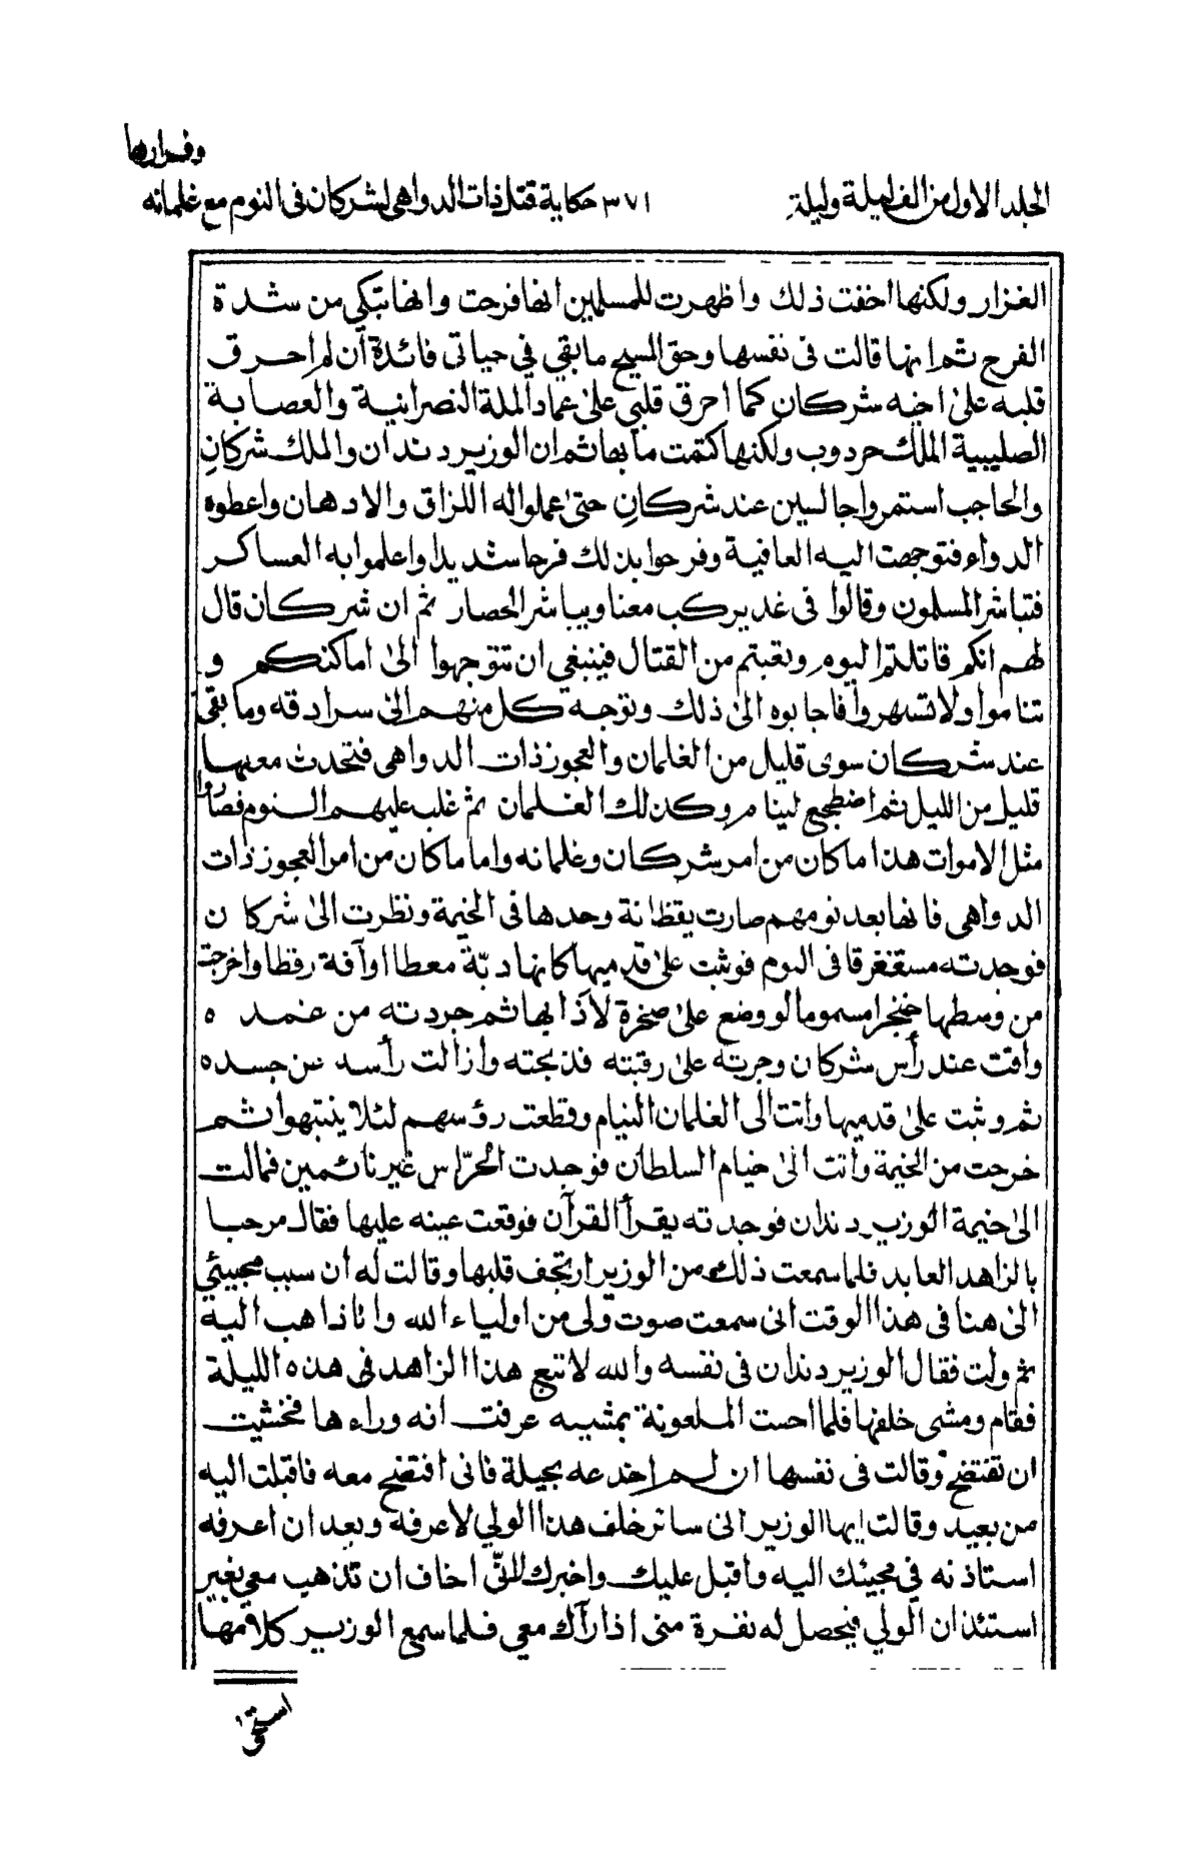 وفرارها
المجلد الاول من الف ليلة وليلة ٣٧١ حكاية قتل ذات الدواهى لشركان فى النوم مع غلمانه
الغزار ولكنها اخفت ذلك واظهرت للمسلمين انها فرحت وانها تبكى من شدة
الفرح ثم انها قالت فى نفسها وحق المسيح ما بقي في حياتى فائدة ان لم احرق
قلبه على اخيه شركان كما احرق قلبي على عماد الملة النصرانية والعصابة
الصليبية الملك حردوب ولكنها كتمت ما بها ثم ان الوزير دندان والملك شركان
والحاجب استمروا جالسين عند شركان حتى عملوا له اللزاق والادهان واعطوه
الدواء فتوجهت اليه العافية وفرحوا بذلك فرحا شديدا واعلموا به العساكر
فتباشر المسلمون وقالوا فى غد يركب معنا ويباشر الحصار ثم ان شركان قال
لهم انكم قاتلتم اليوم وتعبتم من القتال فينبغي ان تتوجهوا الى اماكنكم و
تناموا ولا تسهروا فاجابوه الى ذلك وتوجه كل منهم الى سرادقه وما بقى
عند شركان سوى قليل من الغلمان والعجوز ذات الدواهى فتحدث معها
قليل من الليل ثم اضطجع لينام وكذلك الغلمان ثم غلب عليهم النوم فصاروا
مثل الاموات هذا ما كان من امر شركان وغلمانه واما ما كان من امر العجوز ذات
الدواهى فانها بعد نومهم صارت يقظانة وحدها فى الخيمة ونظرت الى شركان
فوجدته مستغرقا فى النوم فوثبت على قدميها كانها دبّة معطا اوآفة رقطا واخرجت
من وسطها خنجرا مسموما لو وضع على صخرة لاذابها ثم جردته من غمده
واقت عند رأس شركان وجرته على رقبته فذبحته وازالت رأسه عن جسده
ثم وثبت على قدميها واتت الى الغلمان النيام وقطعت رؤسهم لئلا ينتبهوا ثم
خرجت من الخيمة واتت الى خيام السلطان فوجدت الحرّاس غير نائمين فمالت
الى خيمة الوزير دندان فوجدته يقرأ القرآن فوقعت عينه عليها فقال مرحبا
بالزاهد العابد فلما سمعت ذلك من الوزير ارتجف قلبها وقالت له ان سبب مجيئي
الى هنا فى هذا الوقت انى سمعت صوت ولى من اولياء الله وانا ذاهب اليه
ثم ولت فقال الوزير دندان فى نفسه والله لاتبع هذا الزاهد فى هذه الليلة
فقام ومشى خلفها فلما احست الملعونة بمشيه عرفت انه وراءها فخشيت
ان تفتضح وقالت فى نفسها ان لم اخدعه بحيلة فانى افتضح معه فاقبلت اليه
من بعيد وقالت ايها الوزير انى سائر خلف هذا الولي لاعرفه وبعد ان اعرفه
استاذنه في مجيئك اليه واقبل عليك واخبرك لانّى اخاف ان تذهب معي بغير
استئذان الولي فيحصل له نفرة منى اذا رآك معي فلما سمع الوزير كلامها
استحى